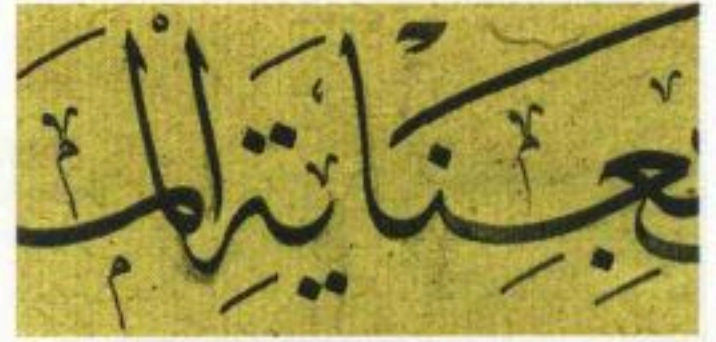 بِعِنَايَةِ الْمَـ